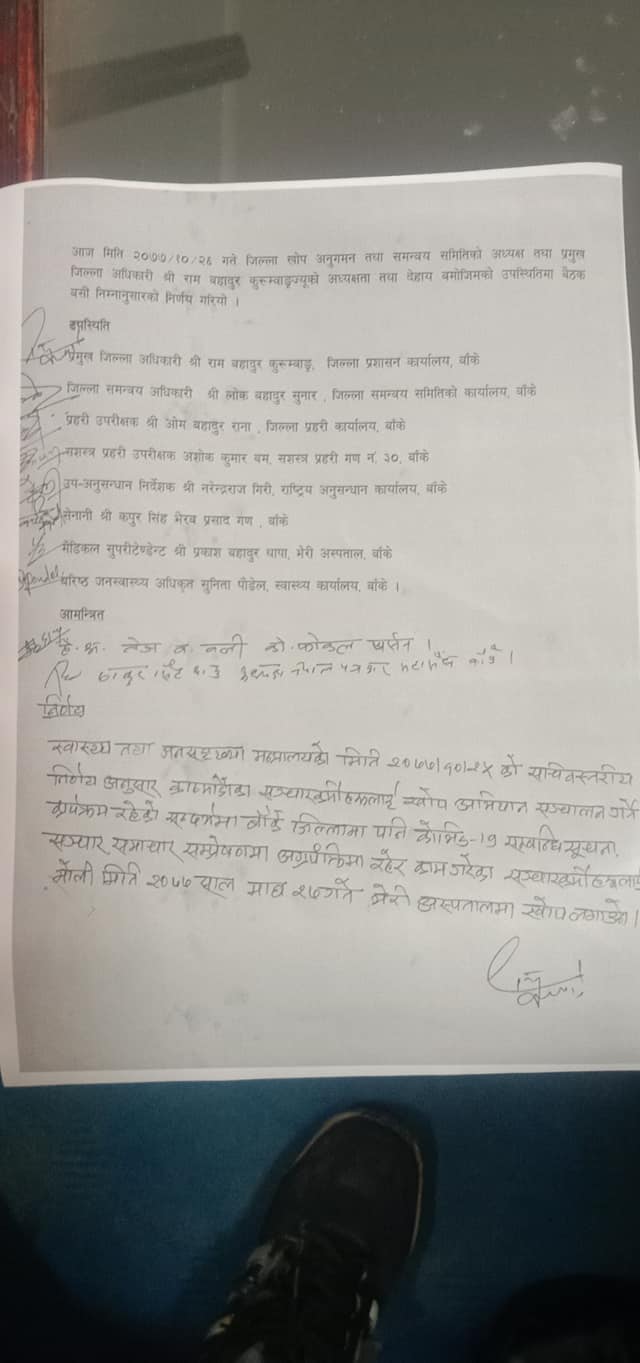 आज मिति २०७७/१०/२६ गते जिल्ला खोप अनुगमन तथा समन्वय समितिको अध्यक्ष तथा प्रमुख
जिल्ला अधिकारी श्री राम बहादुर कुरूम्वाङ्ज्यूको अध्यक्षता तथा देहाय बमोजिमको उपस्थितिमा बैठक
बसी निम्नानुसारको निर्णय गरियो ।
उपस्थिति
प्रमुख जिल्ला अधिकारी श्री राम बहादुर कुरूम्वाङ्, जिल्ला प्रशासन कार्यालय, बाँके
जिल्ला समन्वय अधिकारी श्री लोक बहादुर सुनार , जिल्ला समन्वय समितिको कार्यालय, बाँके
प्रहरी उपरीक्षक श्री ओम बहादुर राना , जिल्ला प्रहरी कार्यालय, बाँके
सशस्त्र प्रहरी उपरीक्षक अशोक कुमार बम, सशस्त्र प्रहरी गण नं. ३०, बाँके
उप-अनुसन्धान निर्देशक श्री नरेन्द्रराज गिरी, राष्ट्रिय अनुसन्धान कार्यालय, बाँके
सेनानी श्री कपुर सिंह भैरब प्रसाद गण , बाँके
मेडिकल सुपरीटेण्डेन्ट श्री प्रकाश बहादुर थापा, भेरी अस्पताल, बाँके
वरिष्ठ जनस्वास्थ्य अधिकृत सुनिता पौडेल, स्वास्थ्य कार्यालय, बाँके ।
आमन्त्रित
तेज ब. वली को. फोकल पर्सन ।
नेपाल पत्रकार महासंघ बाँके ।
निर्णय
स्वास्थ्य तथा जनसंख्या मन्त्रालयको मिति २०७७।१०।२५ को सचिवस्तरीय
निर्णय अनुसार काठमाडौंका सञ्चारकर्मीहरूलाई खोप अभियान सञ्चालन गर्ने
कार्यक्रम रहेको सन्दर्भमा बाँके जिल्लामा पनि कोभिड-19 सम्बन्धि सूचना,
सञ्चार, समाचार सम्प्रेषणमा अग्रपंक्तिमा रहेर काम गरेका सञ्चारकर्मीहरूलाई
भोली मिति २०७७ साल माघ २७ गते भेरी अस्पतालमा खोप लगाउने ।